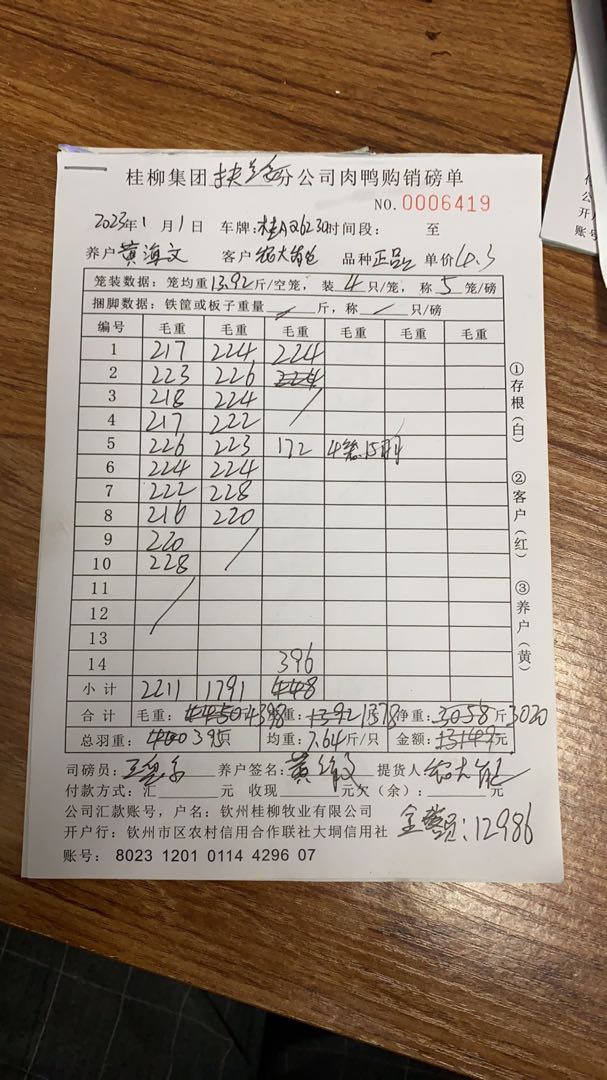 桂柳集团 分公司肉鸭购销磅单
NO.0006419
2023年1月1日 车牌:桂A Q6230时间段: 至
养户黄海文 客户 农大 品种正品 单价4.3
笼装数据:笼均重13.92斤/空笼,装4只/笼,称5笼/磅
捆脚数据:铁筐或板子重量/斤,称/只/磅
编号 毛重 毛重 毛重 毛重 毛重 毛重
1 217 224 224
2 223 226 224
3 218 224 /
4 217 222
5 226 223 172 4笼15羽
6 224 224
7 222 228
8 216 220
9 220 /
10 228
11 /
12
13
14 396
小计 2211 1791 448
合计 毛重:4450 4398 重:1392 1378 净重:3058斤3020
总羽重:400 395只 均重:7.64斤/只 金额:13149元
司磅员: 养户签名:黄海文 提货人 农大
付款方式:汇 元 收现 元欠(余): 元
公司汇款账号,户名:钦州桂柳牧业有限公司
开户行:钦州市区农村信用合作联社大垌信用社
金额:12986
账号: 8023 1201 0114 4296 07
①存根(白)
②客户(红)
③养户(黄)